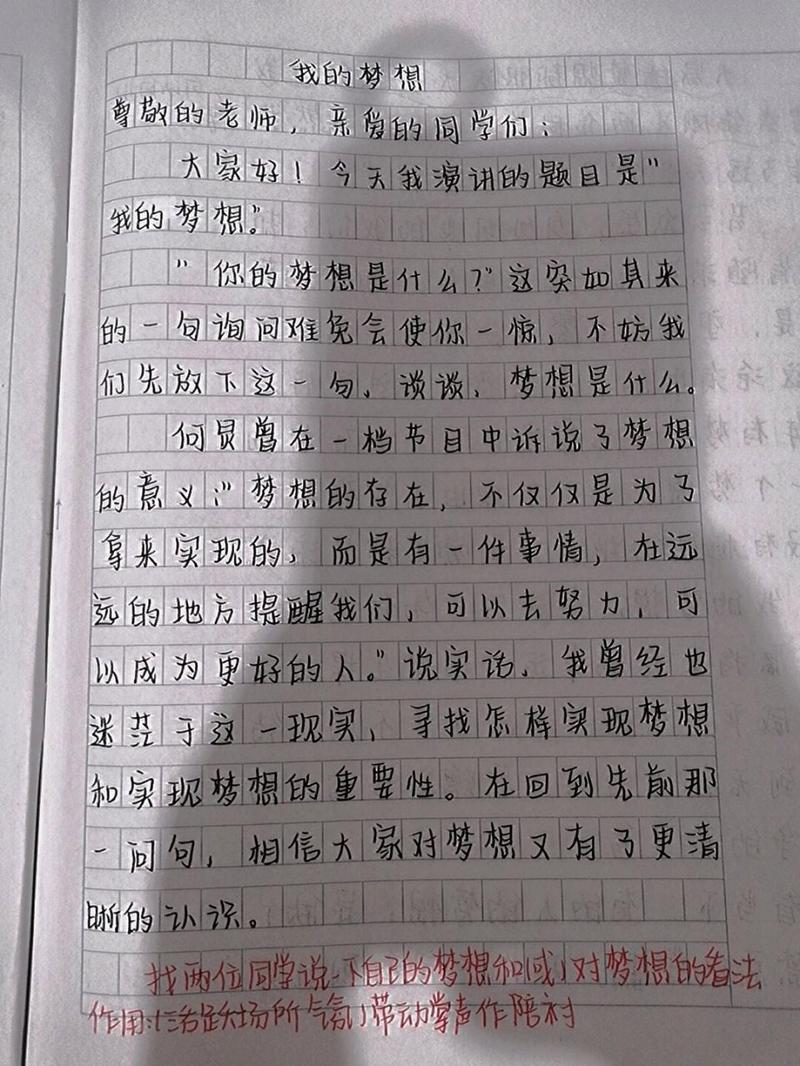 我的梦想
尊敬的老师，亲爱的同学们：
大家好！今天我演讲的题目是"
我的梦想"。
"你的梦想是什么？"这突如其来
的一句询问难免会使你一惊，不妨我
们先放下这一句，谈谈，梦想是什么。
何炅曾在一档节目中诉说了梦想
的意义："梦想的存在，不仅仅是为了
拿来实现的，而是有一件事情，在远
远的地方提醒我们，可以去努力，可
以成为更好的人。"说实话，我曾经也
迷茫于这一现实，寻找怎样实现梦想
和实现梦想的重要性。在回到先前那
一问句，相信大家对梦想又有了更清
晰的认识。
找两位同学说一下自己的梦想和(或)对梦想的看法
作用:(活跃场所气氛)带动掌声作陪衬